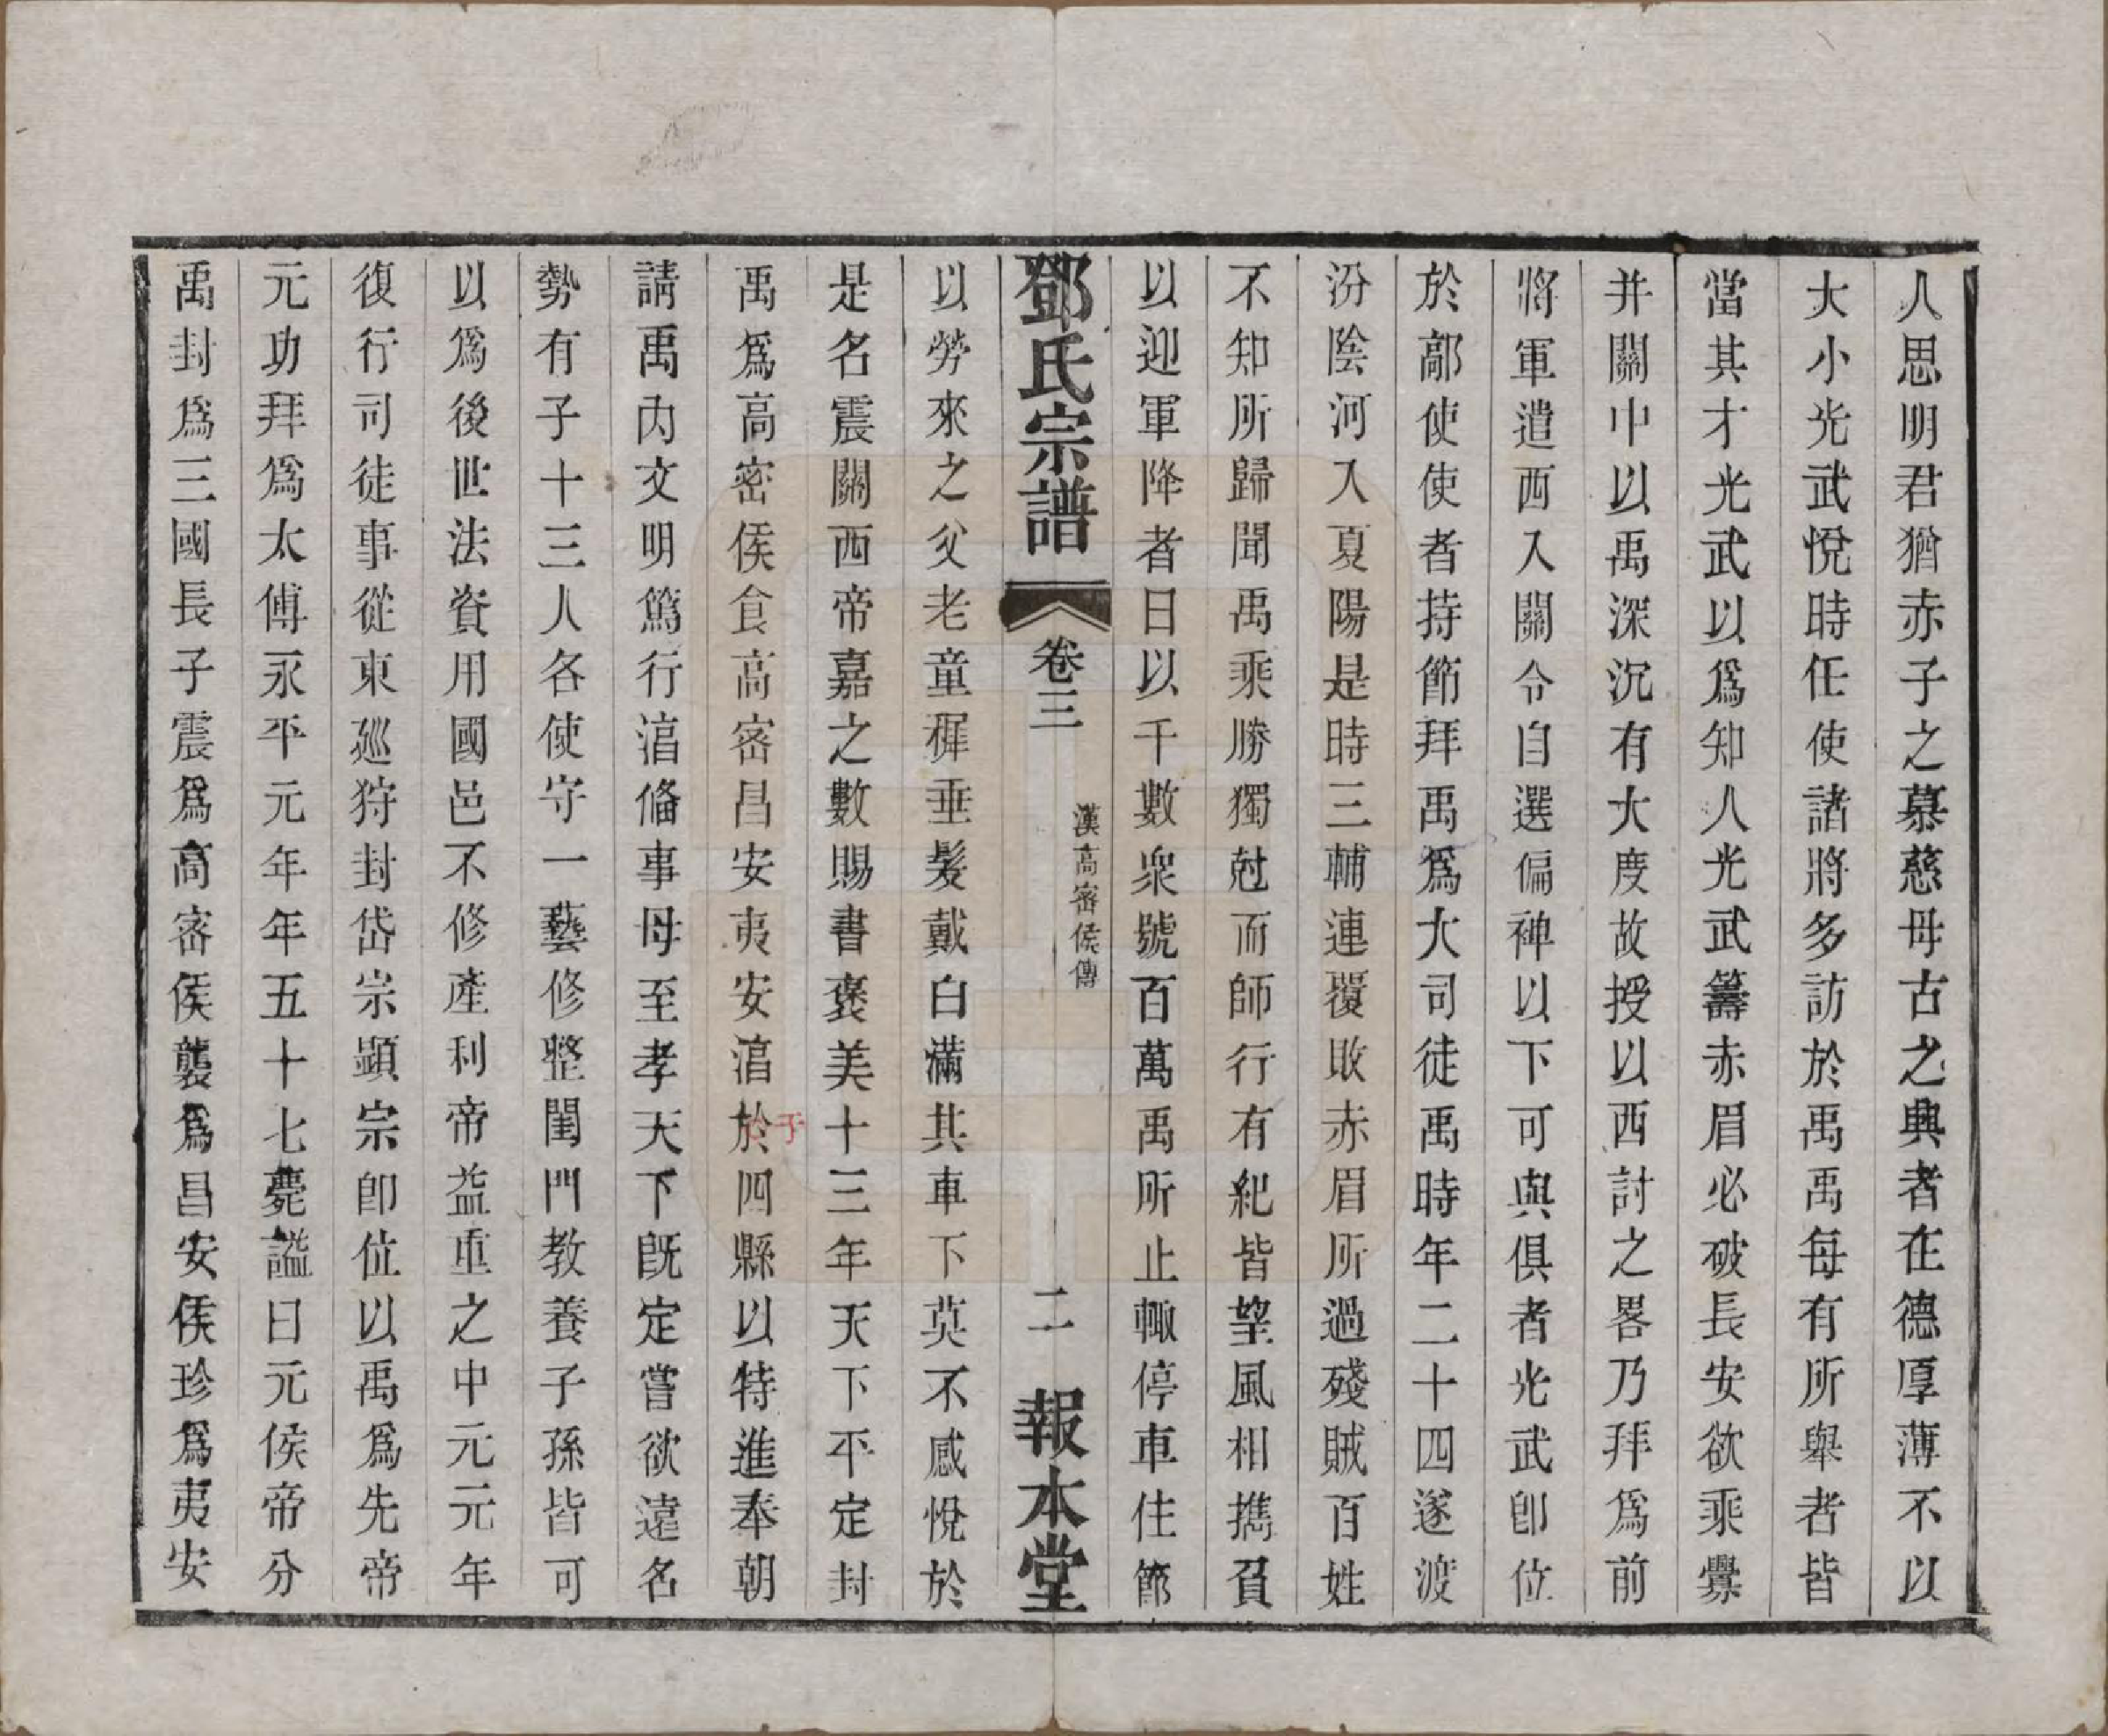 人思明君猶赤子之慕慈母古之典者在德厚薄不以
大小光武悅時任使諸將多訪於禹禹每有所舉者皆
當其才光武以爲知人光武籌赤眉必破長安欲乘釁
并關中以禹深沉有大度故授以西討之畧乃拜爲前
將軍遣西入關令自選偏裨以下可與俱者光武卽位
於鄗使使者持節拜禹爲大司徒禹時年二十四遂渡
汾陰河入夏陽是時三輔連覆敗赤眉所過殘賊百姓
不知所歸聞禹乘勝獨尅而師行有紀皆望風相攜負
以迎軍降者日以千數衆號百萬禹所止輙停車住節
鄧氏宗譜
卷三
漢高密侯傳
二
報本堂
以勞來之父老童穉垂髮戴白滿其車下莫不感悅於
是名震關西帝嘉之數賜書褒美十三年天下平定封
禹爲高密侯食高密昌安夷安湻於四縣以特進奉朝
于
請禹內文明篤行湻偹事母至孝天下旣定嘗欲遠名
勢有子十三人各使守一藝修整閨門教養子孫皆可
以爲後世法資用國邑不修產利帝益重之中元元年
復行司徒事從東廵狩封岱宗顯宗卽位以禹爲先帝
元功拜爲太傅永平元年年五十七薨謚曰元侯帝分
禹封爲三國長子震爲高密侯襲爲昌安侯珍爲夷安